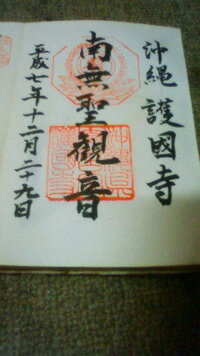 沖縄 護國寺
南無聖観音
平成七年十二月二十九日